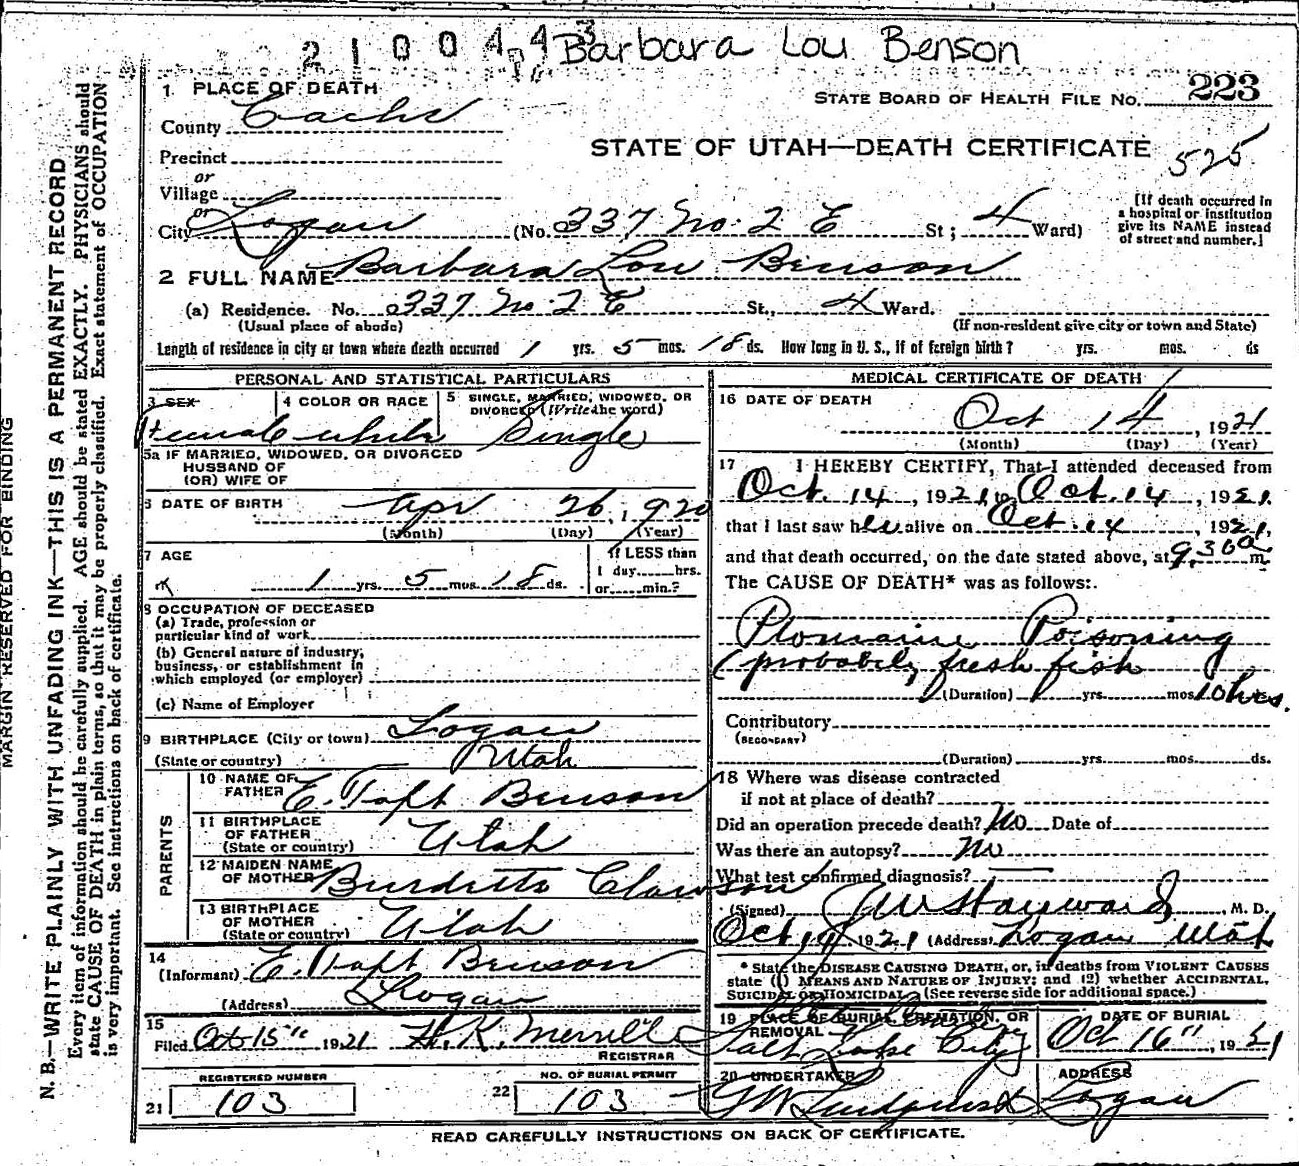 2 1 0 0 4 4 3 Barbara Lou Benson
1 PLACE OF DEATH
STATE BOARD OF HEALTH FILE NO. 223
County Cache
STATE OF UTAH—DEATH CERTIFICATE
525
Precinct
or
Village
or
City Logan (No. 337 No. 2 E St; 4 Ward)
[If death occurred in
a hospital or institution
give its NAME instead
of street and number.]
2 FULL NAME Barbara Lou Benson
(a) Residence. No. 337 No. 2 E St., 4 Ward.
(Usual place of abode) (If non-resident give city or town and State)
Length of residence in city or town where death occurred 1 yrs. 5 mos. 18 ds. How long in U. S., if of foreign birth? yrs. mos. ds
PERSONAL AND STATISTICAL PARTICULARS
3 SEX 4 COLOR OR RACE 5 SINGLE, MARRIED, WIDOWED, OR
DIVORCED (Write the word)
Female white Single
5a IF MARRIED, WIDOWED, OR DIVORCED
HUSBAND OF
(OR) WIFE OF
6 DATE OF BIRTH Apr 26, 1920
(Month) (Day) (Year)
7 AGE If LESS than
1 yrs. 5 mos. 18 ds. 1 day, hrs.
or min.?
8 OCCUPATION OF DECEASED
(a) Trade, profession or
particular kind of work
(b) General nature of industry,
business, or establishment in
which employed (or employer)
(c) Name of Employer
9 BIRTHPLACE (City or town) Logan
(State or country) Utah
PARENTS
10 NAME OF
FATHER E. Taft Benson
11 BIRTHPLACE
OF FATHER
(State or country) Utah
12 MAIDEN NAME
OF MOTHER Burdetto Clawson
13 BIRTHPLACE
OF MOTHER
(State or country) Utah
14
(Informant) E. Taft Benson
(Address) Logan
15
Filed Oct 15" 1921 H. K. Merrill
REGISTRAR
REGISTERED NUMBER
21 103
NO. OF BURIAL PERMIT
22 103
MEDICAL CERTIFICATE OF DEATH
16 DATE OF DEATH
Oct 14, 1921
(Month) (Day) (Year)
17 I HEREBY CERTIFY, That I attended deceased from
Oct. 14, 1921, to Oct. 14, 1921,
that I last saw her alive on Oct. 14, 1921,
and that death occurred, on the date stated above, at 9.30a m.
The CAUSE OF DEATH* was as follows:
Ptomaine Poisoning
(probably fresh fish
(Duration) yrs. mos. 10 hrs.
Contributory
(SECONDARY)
(Duration) yrs. mos. ds.
18 Where was disease contracted
if not at place of death?
Did an operation precede death? No Date of
Was there an autopsy? No
What test confirmed diagnosis?
(Signed) J W Hayward, M. D.
Oct 1921 (Address) Logan Utah
* State the DISEASE CAUSING DEATH, or, in deaths from VIOLENT CAUSES
state (1) MEANS AND NATURE OF INJURY; and (2) whether ACCIDENTAL,
SUICIDAL OR HOMICIDAL. (See reverse side for additional space.)
19 PLACE OF BURIAL, CREMATION, OR
REMOVAL
Salt Lake City
DATE OF BURIAL
Oct 16", 1921
20 UNDERTAKER
G W Lindquist
ADDRESS
Logan
READ CAREFULLY INSTRUCTIONS ON BACK OF CERTIFICATE.
MARGIN RESERVED FOR BINDING
N. B.—WRITE PLAINLY WITH UNFADING INK—THIS IS A PERMANENT RECORD
Every item of information should be carefully supplied. AGE should be stated EXACTLY. PHYSICIANS should
state CAUSE OF DEATH in plain terms, so that it may be properly classified. Exact statement of OCCUPATION
is very important. See instructions on back of certificate.